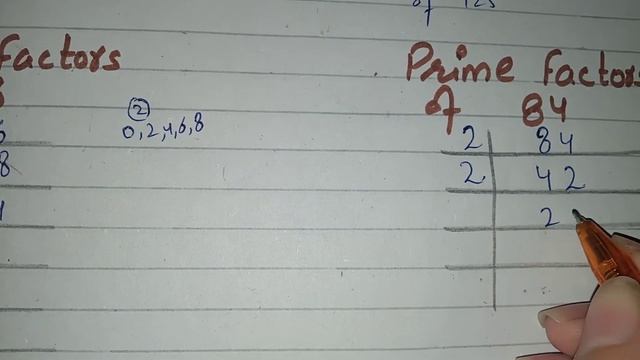 of 125
Factors
8
②
0,2,4,6,8
Prime Factors
of 84
2 84
2 42
2